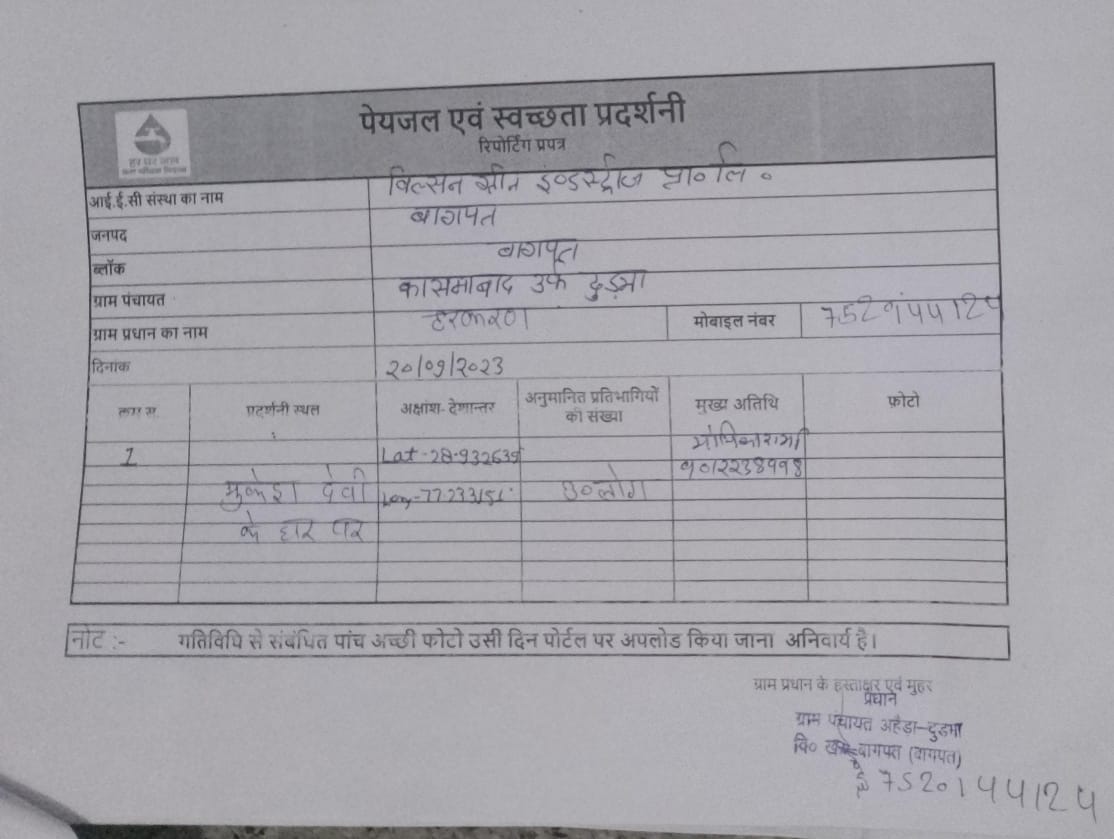 हर घर जल
जल जीवन मिशन
पेयजल एवं स्वच्छता प्रदर्शनी
रिपोर्टिंग प्रपत्र
आई.ई.सी संस्था का नाम विल्सन ग्रीन इंडस्ट्रीज प्रा० लि०
जनपद बागपत
ब्लॉक बागपत
ग्राम पंचायत कासमाबाद उर्फ दुड़भा
ग्राम प्रधान का नाम हरकरण मोबाइल नंबर
दिनांक २०/०९/२०२३
क्रम सं. प्रदर्शनी स्थल अक्षांश- देशान्तर अनुमानित प्रतिभागियों की संख्या मुख्य अतिथि फ़ोटो
1 मुकेश देवी के घर पर Lat -28.932639 लोग
नोट :- गतिविधि से संबंधित पांच अच्छी फोटो उसी दिन पोर्टल पर अपलोड किया जाना अनिवार्य है।
ग्राम प्रधान के हस्ताक्षर एवं मुहर
प्रधान
ग्राम पंचायत अहैड़ा-दुडभा
वि० बागपत (बागपत)
7520144124